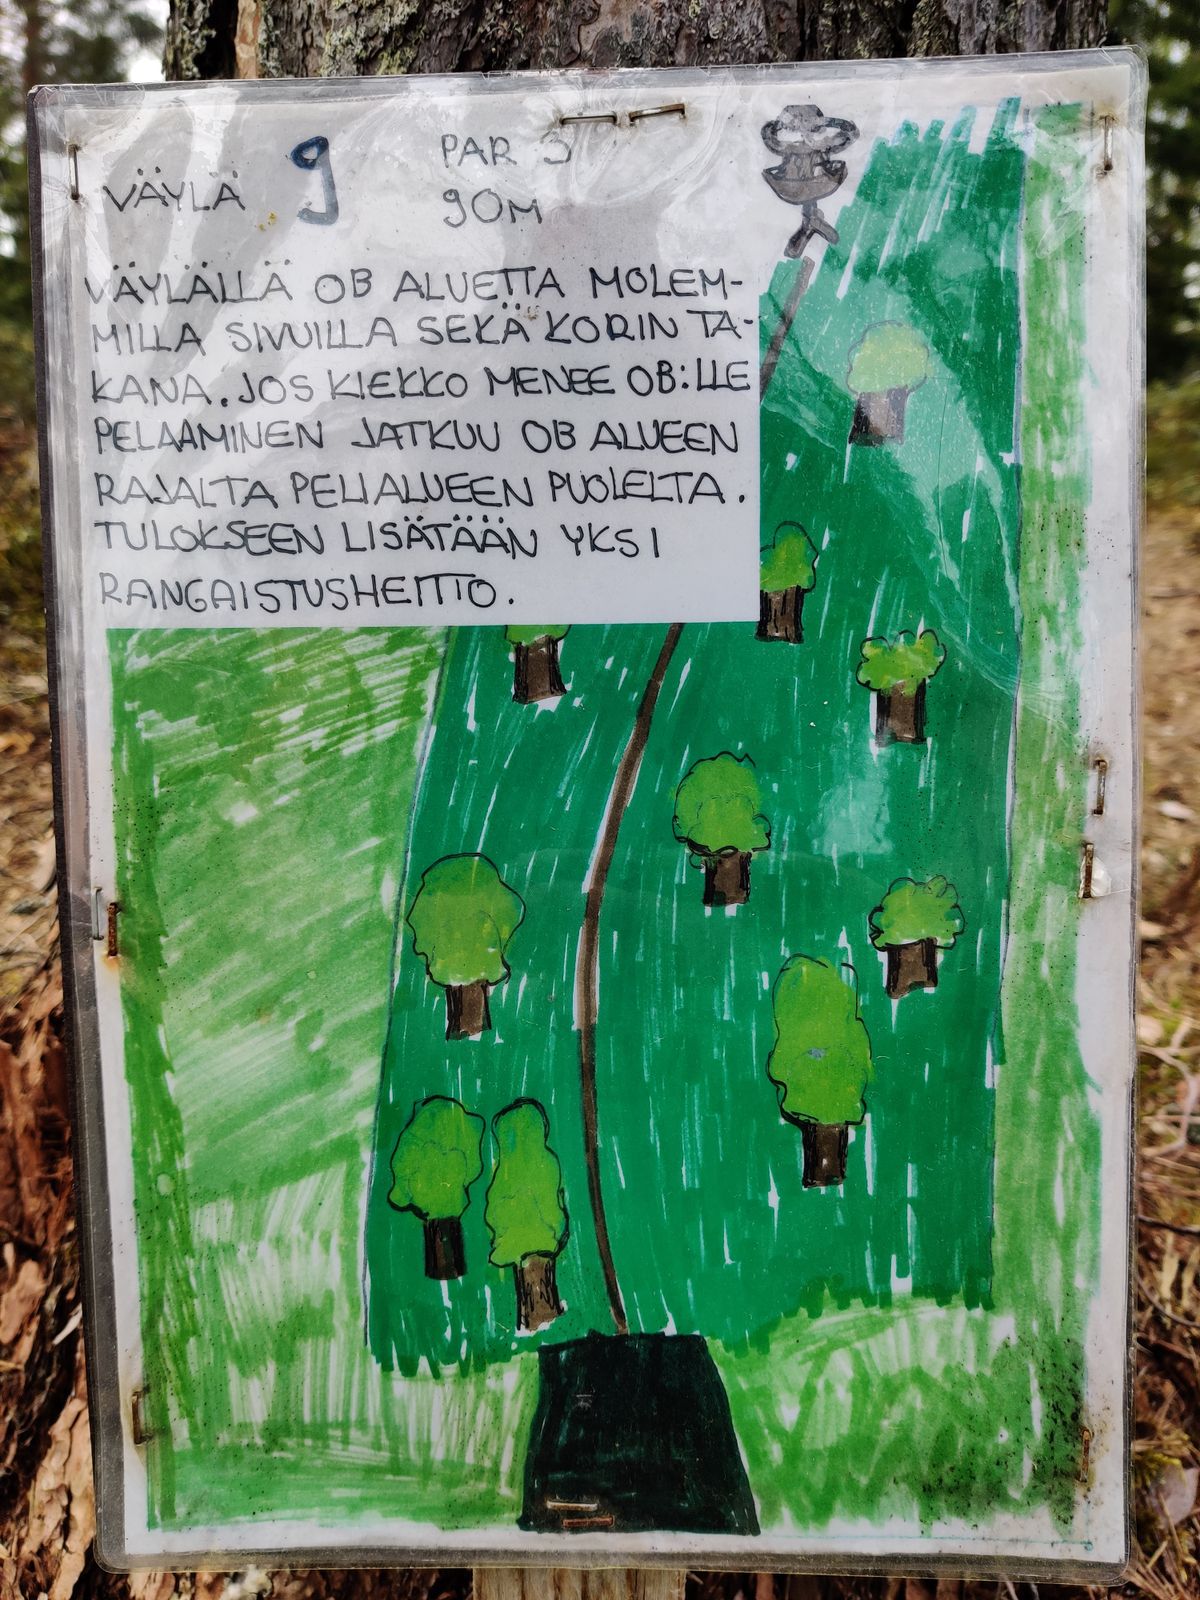 VÄYLÄ 9 PAR 3
90M
VÄYLÄLLÄ OB ALUETTA MOLEM-
MILLA SIVUILLA SEKÄ KORIN TA-
KANA. JOS KIEKKO MENEE OB:LLE
PELAAMINEN JATKUU OB ALUEEN
RAJALTA PELIALUEEN PUOLELTA.
TULOKSEEN LISÄTÄÄN YKSI
RANGAISTUSHEITTO.